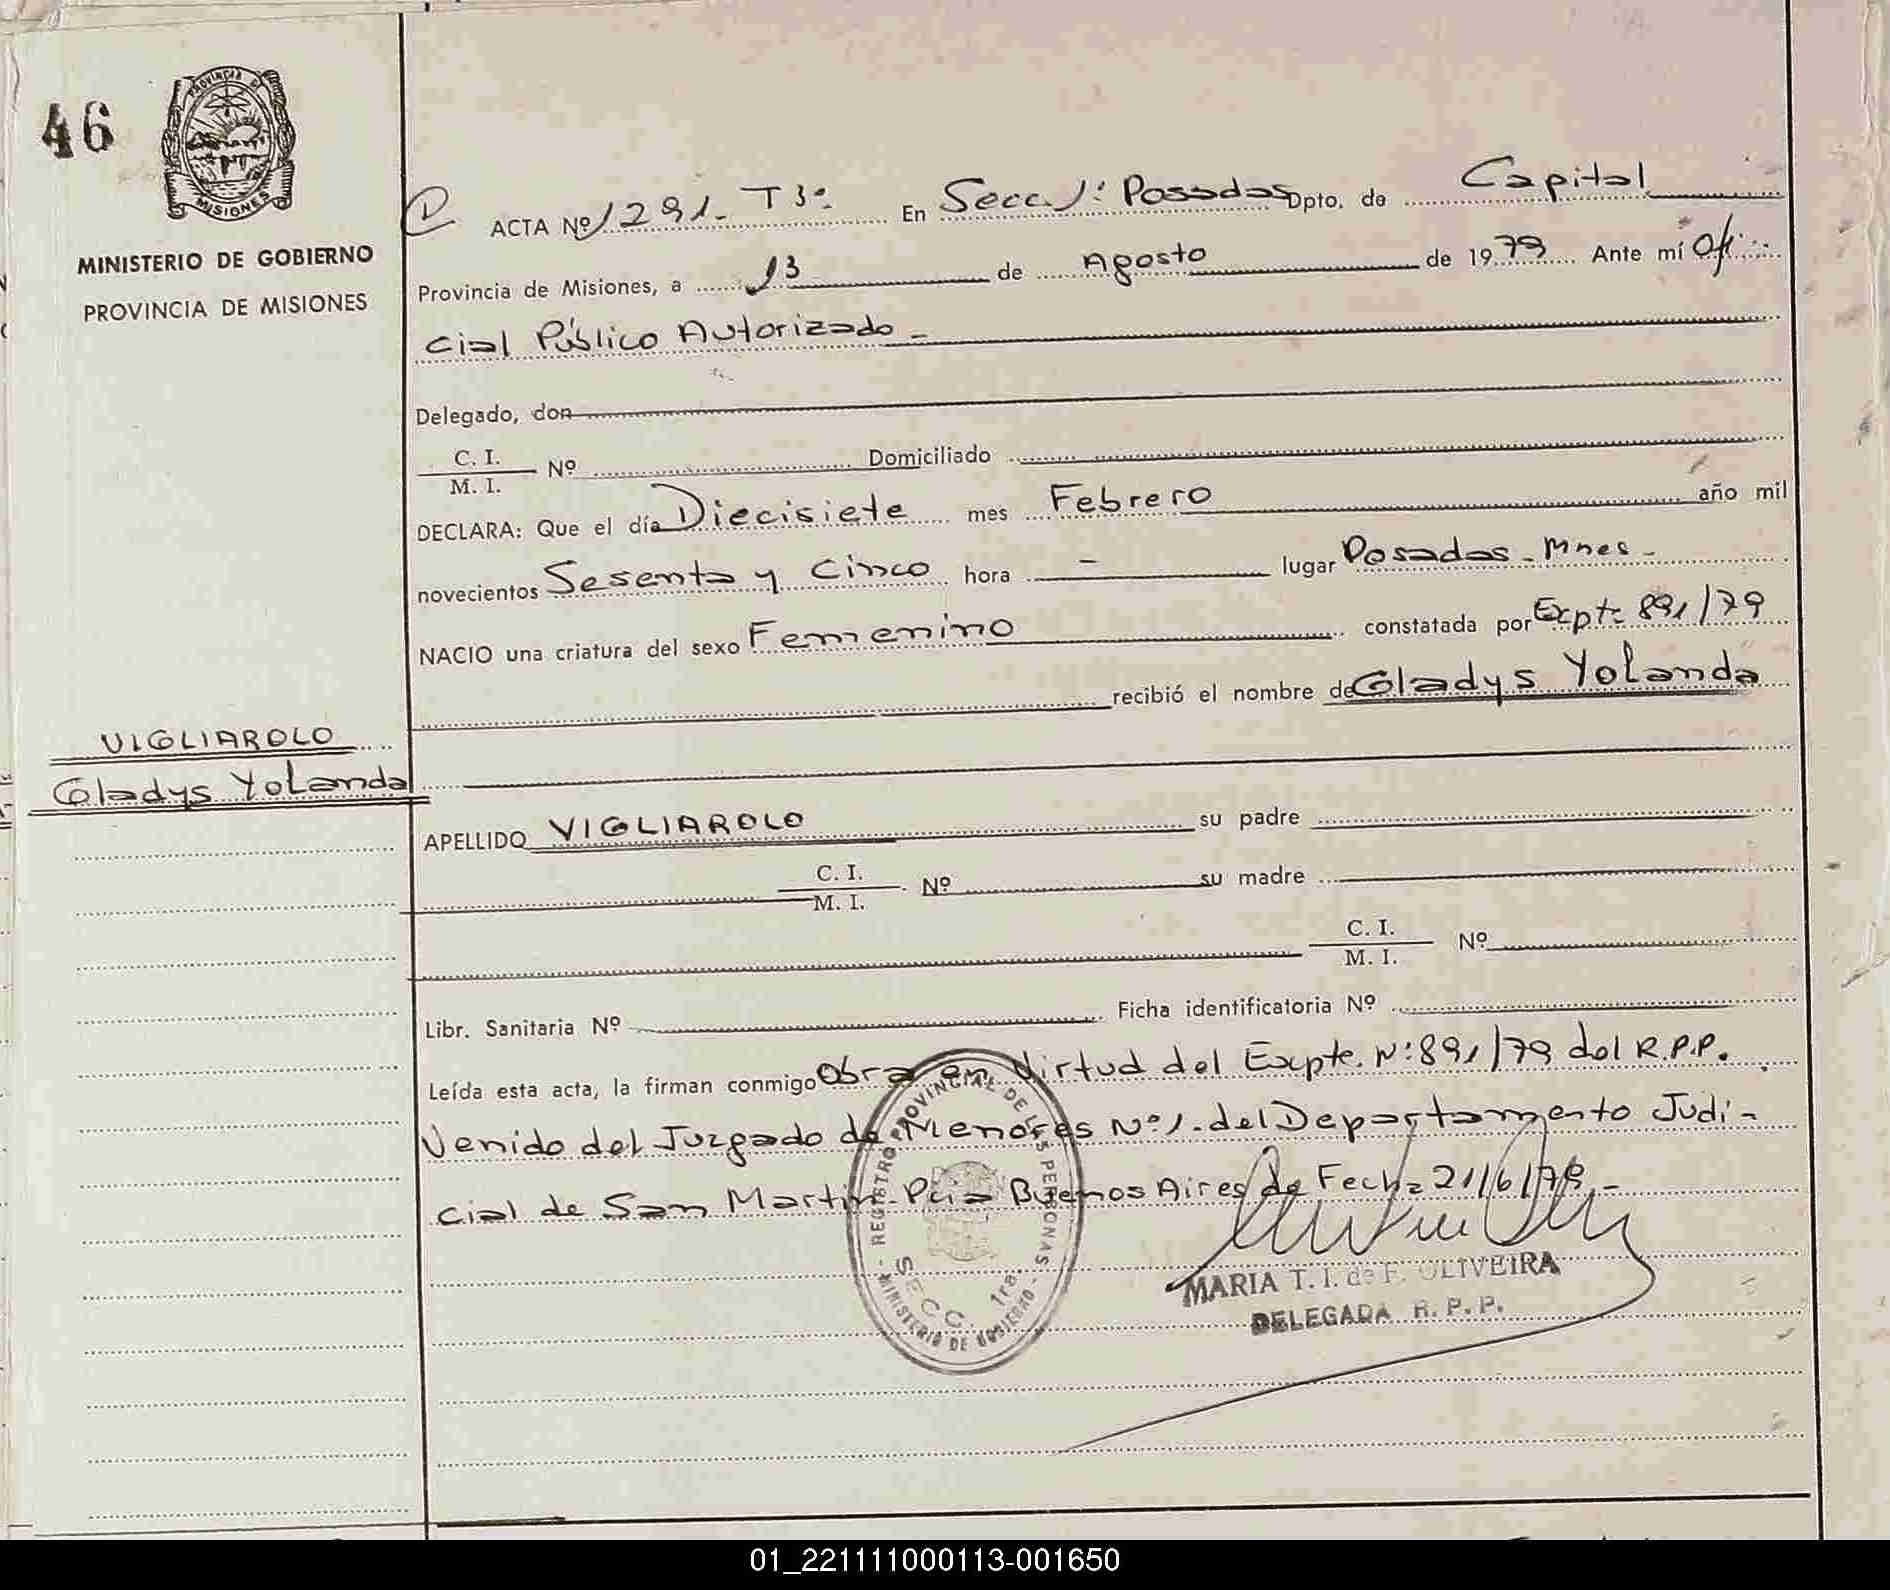 46
PROVINCIA DE
MISIONES
MINISTERIO DE GOBIERNO
PROVINCIA DE MISIONES
ACTA Nº 1291- T3º En Secc. 1ª Posadas Dpto. de Capital
Provincia de Misiones, a 13 de Agosto de 1979 Ante mí Ofi
cial Público Autorizado -
Delegado, don
C. I.
M. I. Nº Domiciliado
DECLARA: Que el día Diecisiete mes Febrero año mil
novecientos Sesenta y Cinco hora - lugar Posadas - Mnes -
NACIO una criatura del sexo Femenino constatada por Expte 891/79
recibió el nombre de Gladys Yolanda
VIGLIAROLO
Gladys Yolanda
APELLIDO VIGLIAROLO su padre
C. I.
M. I. Nº su madre
C. I.
M. I. Nº
Libr. Sanitaria Nº Ficha identificatoria Nº
Leída esta acta, la firman conmigo Obra en Virtud del Expte. Nº 891/79 del R.P.P.
Venido del Juzgado de Menores Nº1- del Departamento Judi-
cial de San Martin- Pcia Buenos Aires de Fecha 21/6/79.-
REGISTRO PROVINCIAL DE LAS PERSONAS
SECC. 1ra.
MINISTERIO DE GOBIERNO
MARIA T. I. de F. OLIVEIRA
DELEGADA R. P. P.
01_221111000113-001650